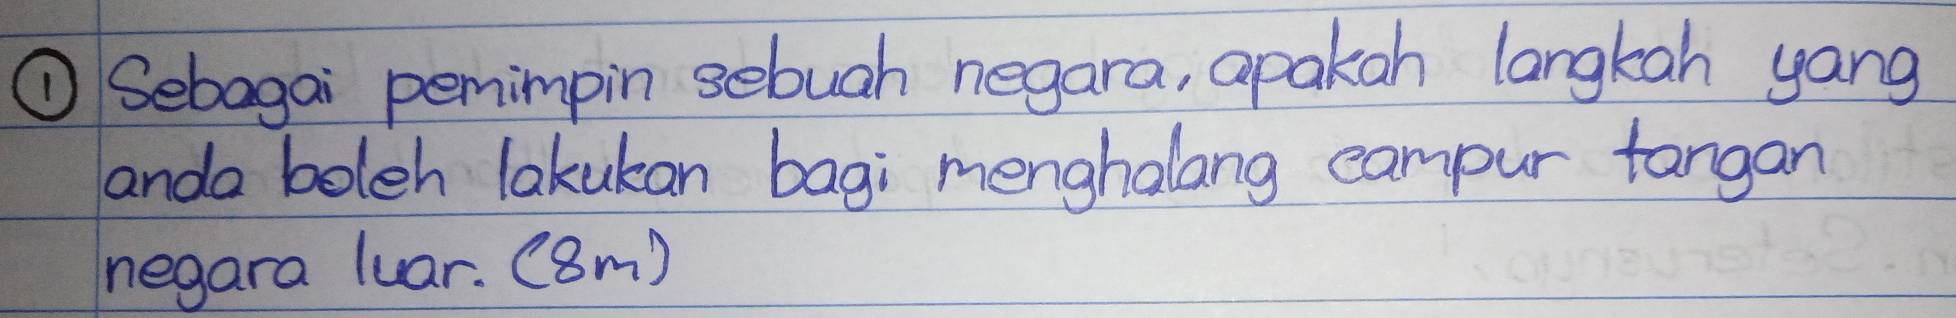 ① Sebagai pemimpin sebuah negara, apakah langkah yang
anda boleh lakukan bagi menghalang campur tangan
negara luar. (8m)